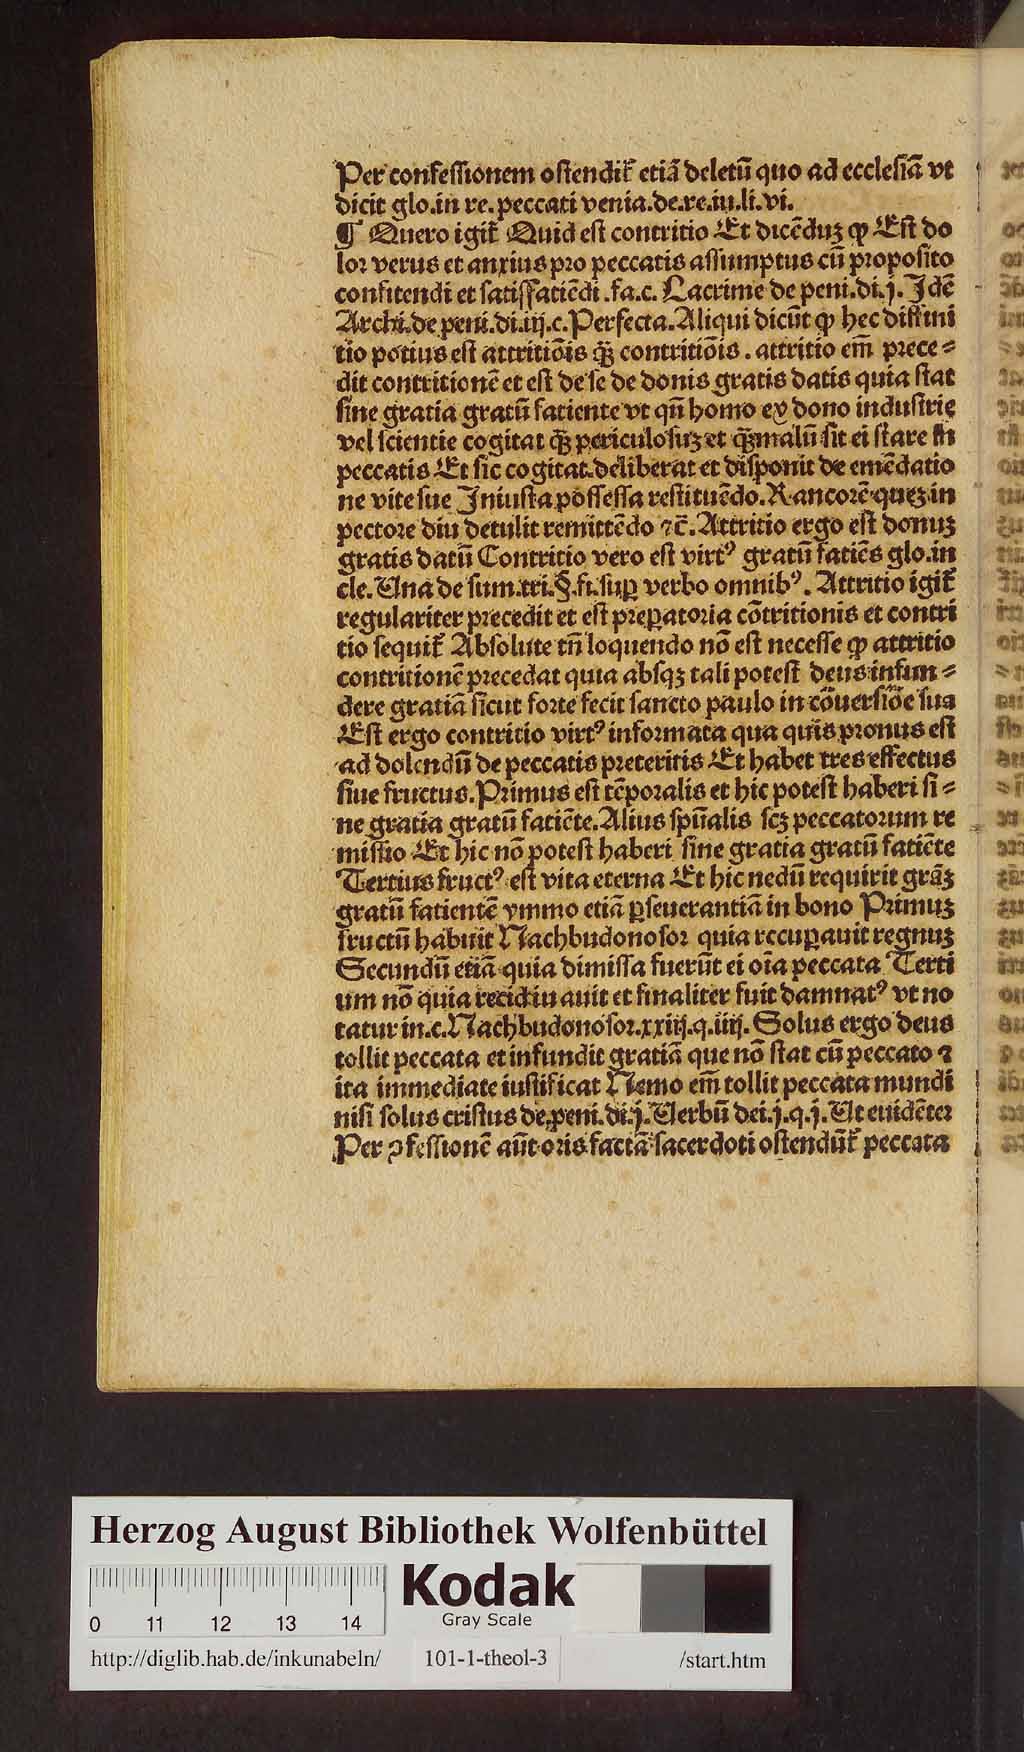 Per confessionem ostendit᷑ etiā deletū quo ad ecclesiā vt
dicit glo.in re.peccati venia.de.re.iu.li.vi.
¶ Quero igit᷑ Quid est contritio Et dicēduꝫ ꝙ Est do
lor verus et anxius pro peccatis assumptus cū proposito
confitendi et satisfatiēdi .fa.c. Lacrime de peni.di.j. Idē
Archi.de peni.di.iij.c.Perfecta.Aliqui dicūt ꝙ hec diffini
tio potius est attritiōis q̄ꝫ contritiōis . attritio em̄ prece⸗
dit contritionē et est de se de donis gratis datis quia stat
sine gratia gratū fatiente vt qn̄ homo ex dono industrię
vel scientie cogitat q̄ꝫ periculosuꝫ et q̄ꝫ malū sit ei stare in
peccatis Et sic cogitat.deliberat et disponit de emēdatio
ne vite sue Iniusta possessa restituēdo.Rancorē queꝫ in
pectore diu detulit remittēdo ⁊c̄. Attritio ergo est donuꝫ
gratis datū Contritio vero est virtꝰ gratū fatiēs glo.in
cle.Una de sum.tri.§.fi.suꝑ verbo omnibꝰ. Attritio igit᷑
regulariter precedit et est preꝑatoria cōtritionis et contri
tio sequit᷑ Absolute tn̄ loquendo nō est necesse ꝙ attritio
contritionē precedat quia absqꝫ tali potest deus infun⸗
dere gratiā sicut forte fecit sancto paulo in cōuersiōe sua
Est ergo contritio virtꝰ informata qua quis pronus est
ad dolendū de peccatis preteritis Et habet tres effectus
siue fructus.Primus est tēporalis et hic potest haberi si⸗
ne gratia gratū fatiēte.Alius spūalis scꝫ peccatorum re
missio Et hic nō potest haberi sine gratia gratū fatiēte
Tertius fructꝰ est vita eterna Et hic nedū requirit grāꝫ
gratū fatientē ymmo etiā ꝑseuerantiā in bono Primuꝫ
fructū habuit Nachbudonosor quia recuꝑauit regnuꝫ
Secundū etiā quia dimissa fuerūt ei oīa peccata Terti
um nō quia recidiuauit et finaliter fuit damnatꝰ vt no
tatur in.c.Nachbudonosor.xxiij.q.iiij. Solus ergo deus
tollit peccata et infundit gratiā que nō stat cū peccato ⁊
ita immediate iustificat Nemo em̄ tollit peccata mundi
nisi solus cristus de.peni.di.j.Verbū dei.j.q.j.Ut euidēter
Per ꝯfessionē aūt oris factā sacerdoti ostendūt᷑ peccata
Herzog August Bibliothek Wolfenbüttel
Kodak
Gray Scale
0 11 12 13 14
http://diglib.hab.de/inkunabeln/ 101-1-theol-3 /start.htm